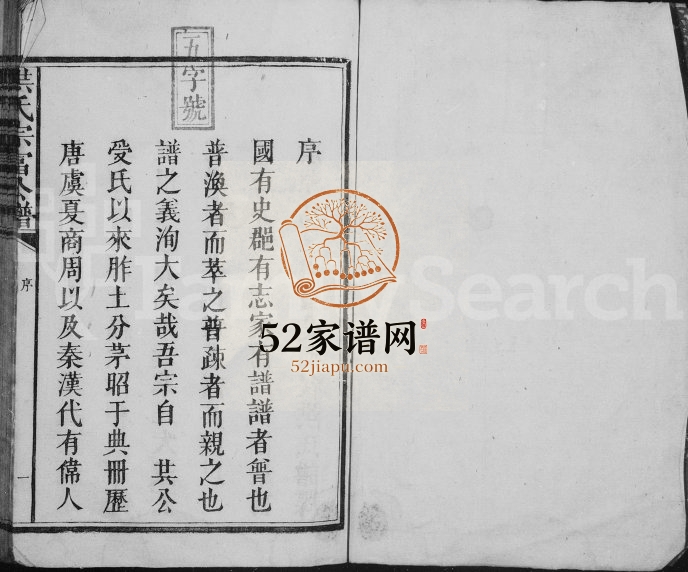 五字號
序
國有史 有志家有譜譜者普也
普渙者而萃之普疎者而親之也
譜之義洵大矣哉吾宗自 共公
受氏以來胙土分茅昭于典冊歷
唐虞夏商周以及秦漢代有偉人
洪氏宗 譜
序
一
52家谱网
52jiapu.com
FamilySearch